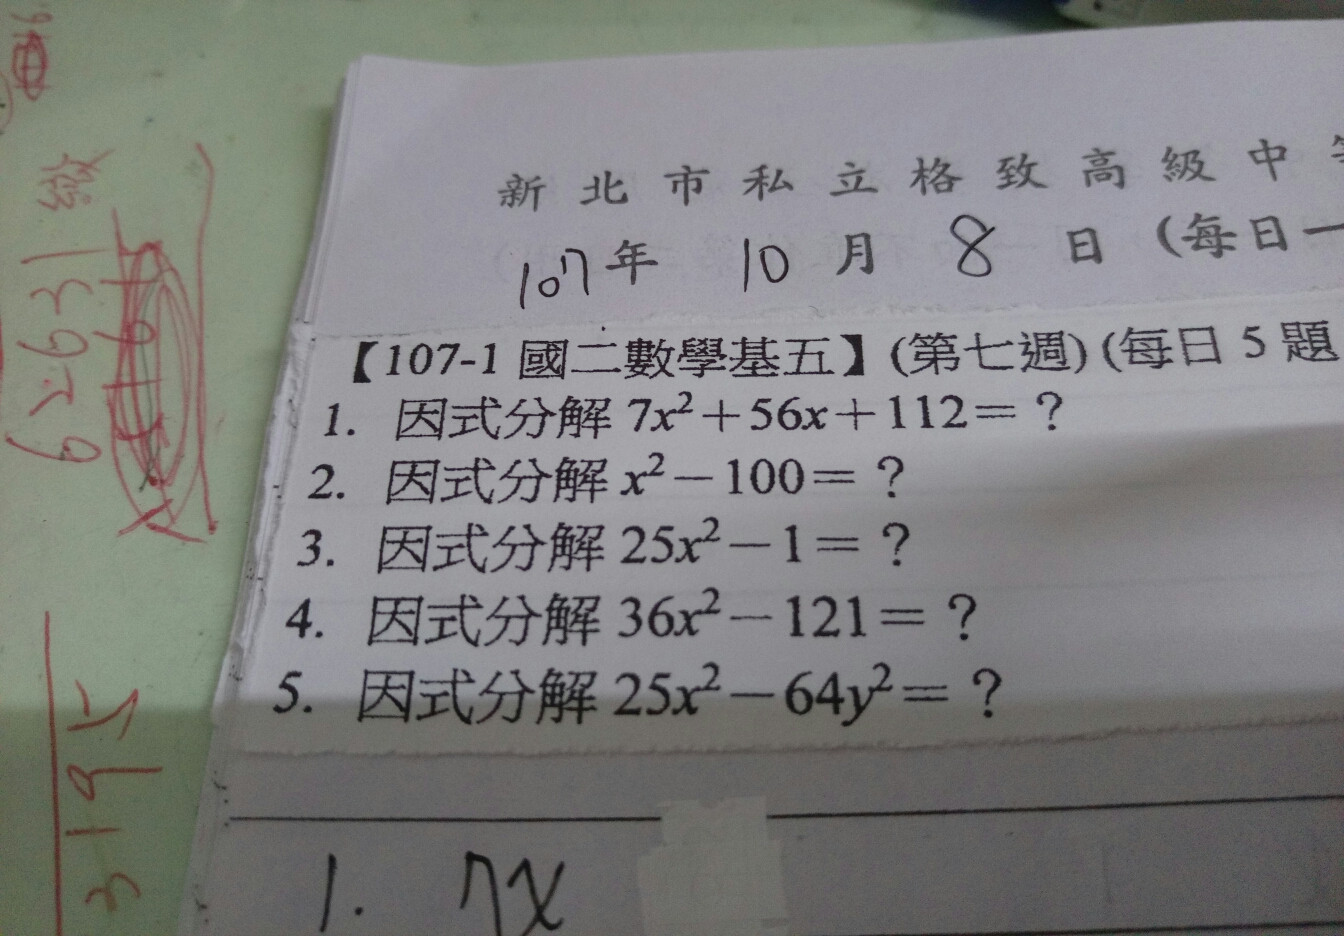 新北市私立格致高級中
107年 10月 8日 (每日一
【107-1 國二數學基五】(第七週) (每日 5 題
1. 因式分解 7x²+56x+112=？
2. 因式分解 x²-100=？
3. 因式分解 25x²-1=？
4. 因式分解 36x²-121=？
5. 因式分解 25x²-64y²=？
1. 7x
62631
3195